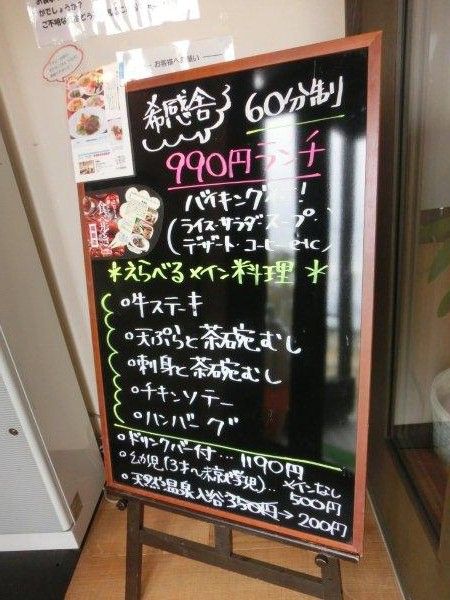 がでしょうか?
お客様への願い
希感舎 60分制
990円ランチ
バイキング
(ライス・サラダ・スープ
デザート・コーヒーetc)
*えらべるメイン料理*
○牛ステーキ
○天ぷらと茶碗むし
○刺身と茶碗むし
○チキンソテー
○ハンバーグ
○ドリンクバー付…1190円
○幼児(3才〜未就学児)‥メインなし
500円
○天然温泉入浴350円→200円